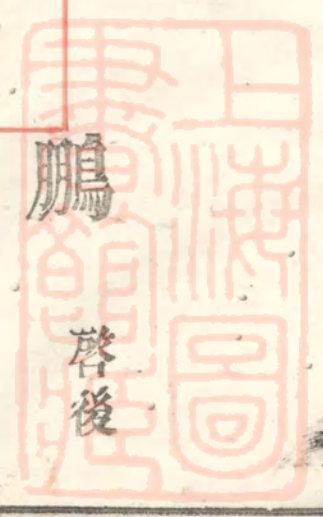 鵬
啓後
上海圖
書館藏